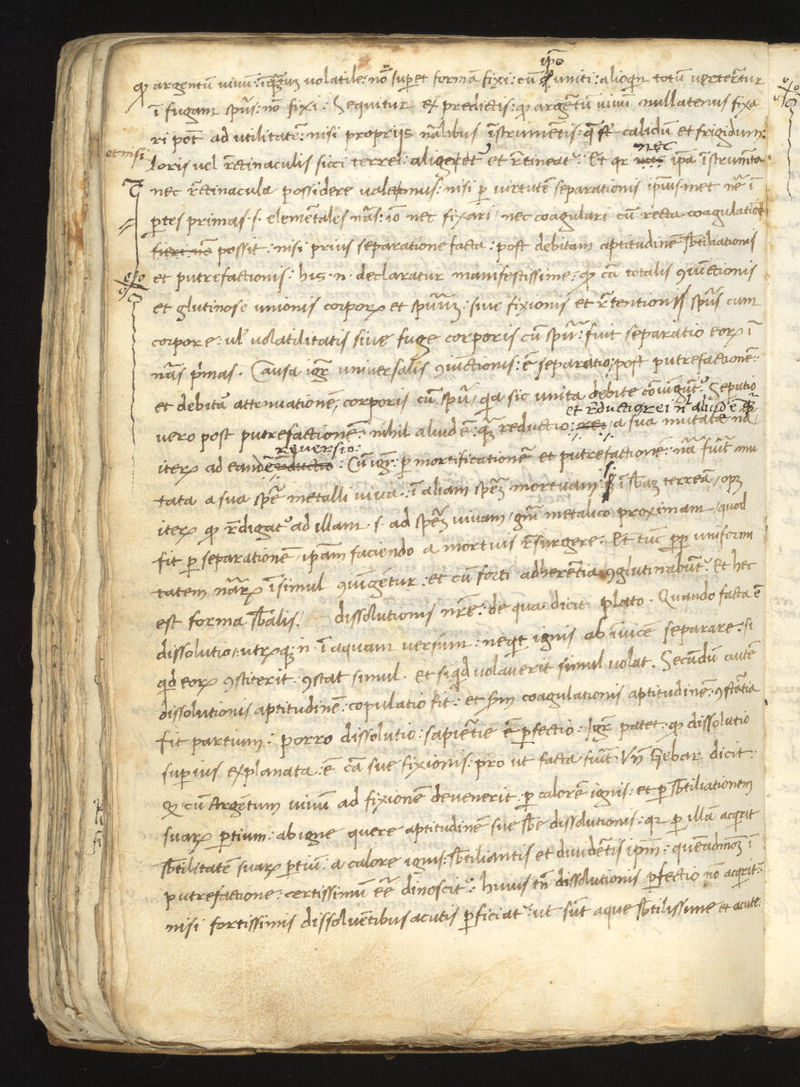 ip̄o
qꝫ argentū vivū: inquātū volatile: nō superet formā fixi: cū uniti: alioqn̄ totū verterētur
ī fugam spūs: nō fixi: Sequitur ex predictis: qꝫ argētū vivū nullatenus fixa
ri pot̄ ad utilitatē: nisi propriis nālibus īstrumētis: calidū et frigidum:
et nisi
loris vel rētinaculis sicci terrei: et rētineat: Et qr nec ipā īstrumēta
nec rētinacula possidere valemus: nisi p virtutē separationis ipius met nr̄e ī
ptes primas .s. elemētales nās: iō nec fixari nec coagulari cū recta coagulatiōe
fieri possit: nisi prius separatione facta: post debitam aptitudinē sbtiliationis
et putrefactionis: his .n. declaratur manifestissime: qꝫ cā totalis 9iūctionis
et glutinose unionis corporꝝ et spūū: sive fixionis et rētentionis spūs cum
corpore: vl volatilitatis sive fuge corporis cū spū: fuit separatio eorꝝ ī
nās p̄mas. Causa igr̄ universalis 9iūctionis: ē separatio: post putrefactionē:
et debitā attenuationē, corporis cū spū, qa sic unita debite cōiūgūt. Sepatio
et rēductō rei nl̄ aliud ē qꝫ
vero post putrefactionē: nihil aliud ē: qꝫ reductio: rei, a sua mutata nā
reversio:
iterꝝ ad eandē reductio: Cū igr̄: p mortificationē et putrefactionē: nā fuit mu
tata a sua spē metalli viva: ī aliam spēz mortuam: ī sbāz terreā, opꝫ
iterꝝ qꝫ rēdigat ad illam .s. ad spēz vivam, gn̄i metalico proximam, quod
fit p separationē, ipam faciendo a mortuis resurgere. Et tūc pp uniformi
tatem nārꝝ īsimul 9iūgētur: et cū forti adherētia 9glutinabūt. Et hec
est forma sbālis: dissolutionis nr̄e: de qua dicit plato. Quando facta ē
dissolutio: utrꝝqꝫ .n. ī aquam versum: neqt ignis ab ivicē separare: si
qd eorꝝ 9stiterit: 9stat simul. et si qd volaverit simul volat. Secūdū autē
dissolutionis aptitudinē: copulatio fit: et sm coagulationis aptitudinē: 9stātia
fit partum: porro dissolutio: sapiētie ē pfectio: Igr̄ patet: qꝫ dissolutio
superius explanata: ē cā sue fixionis: pro ut facta fuit: Vn̄ Gebar dicit:
qꝫ cū Argētum vivū ad fixionē devenerit: p calorē ignis: et p sbtiliationem
suarꝝ ptium: ab igne quere aptitudinē sue sbe dissolutionis: qr p illā acqrit
sbtilitatē suarꝝ ptiū: a calore ignis: sbtiliantis et dividētis ipm: quēadmoꝫ ī
putrefactione: certissimū eē dinoscit: huius tn̄ dissolutionis pfectio nō acqrit:
nisi fortissimis dissolvētibus acutis pficiat: ut sūt aque sbtilissime et acute: